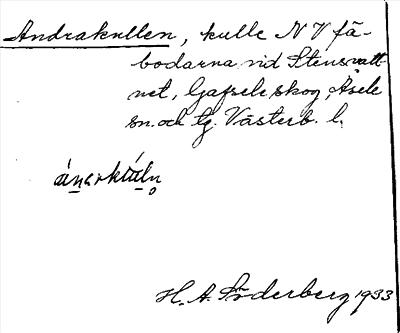 Andrakullen, kulle N V fä-
bodarna vid Stensvatt-
net, Gafsele skog, Åsele
sn. och tg. Västerb. l.
H. A. Söderberg 1933